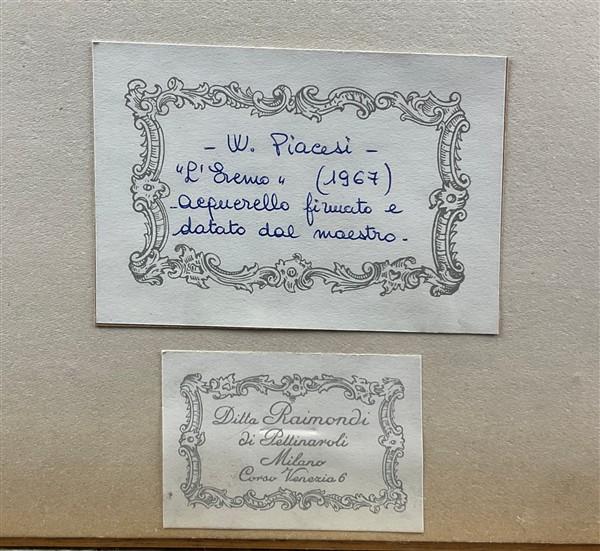 - W. Piacesi -
"L'Eremo" (1967)
- acquerello firmato e
datato dal maestro -
Ditta Raimondi
di Pettinaroli
Milano
Corso Venezia 6